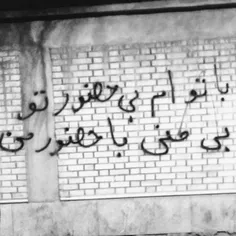 با تو ام بی حضور تو
بی منی با حضور من